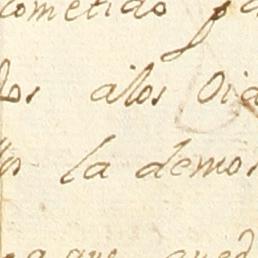 cometido
los alos Oid
la demos
que qued